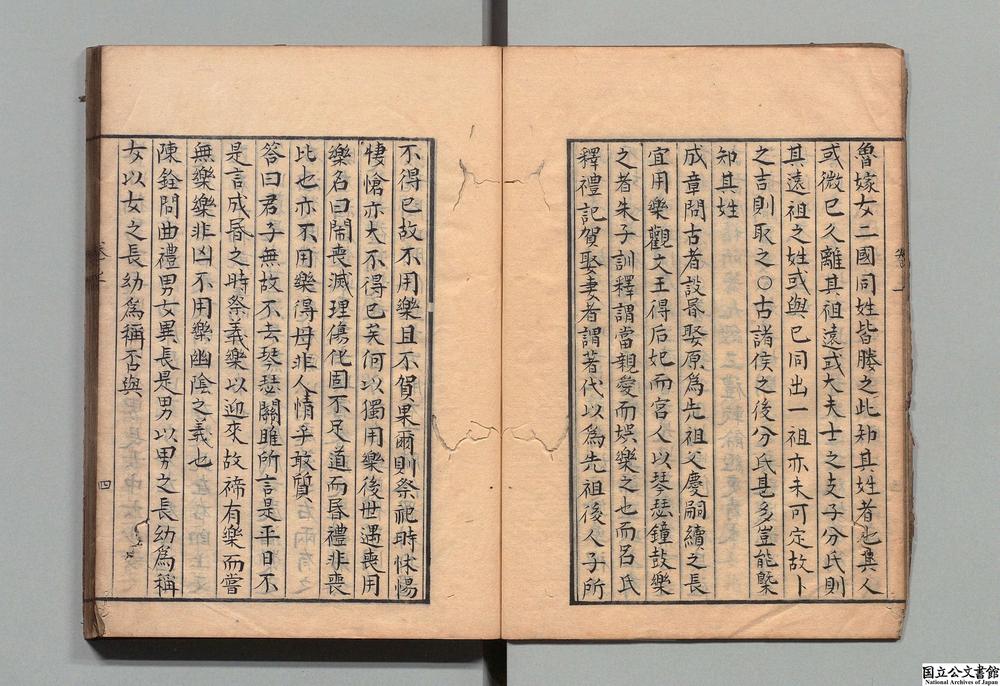 魯嫁女二國同姓皆媵之此知其姓者也異人
或微已久離其祖遠或大夫士之支子分氏則
其遠祖之姓或與已同出一祖亦未可定故卜
之吉則取之○古諸侯之後分氏甚多豈能槩
知其姓
成章問古者設昏娶原爲先祖父慶嗣續之長
宜用樂觀文王得后妃而宮人以琴瑟鐘鼓樂
之者朱子訓釋謂當親愛而娛樂之也而呂氏
釋禮記賀娶妻者謂著代以爲先祖後人子所
不得已故不用樂且不賀果爾則祭祀時怵惕
悽愴亦大不得已矣何以獨用樂後世遇喪用
樂名曰鬧喪滅理傷化固不足道而昏禮非喪
比也亦不用樂得毋非人情乎敢質
答曰君子無故不去琴瑟關雎所言是平日不
是言成昏之時祭義樂以迎來故禘有樂而嘗
無樂樂非凶不用樂幽陰之義也
陳銓問曲禮男女異長是男以男之長幼爲稱
女以女之長幼爲稱否與
四
国立公文書館
National Archives of Japan